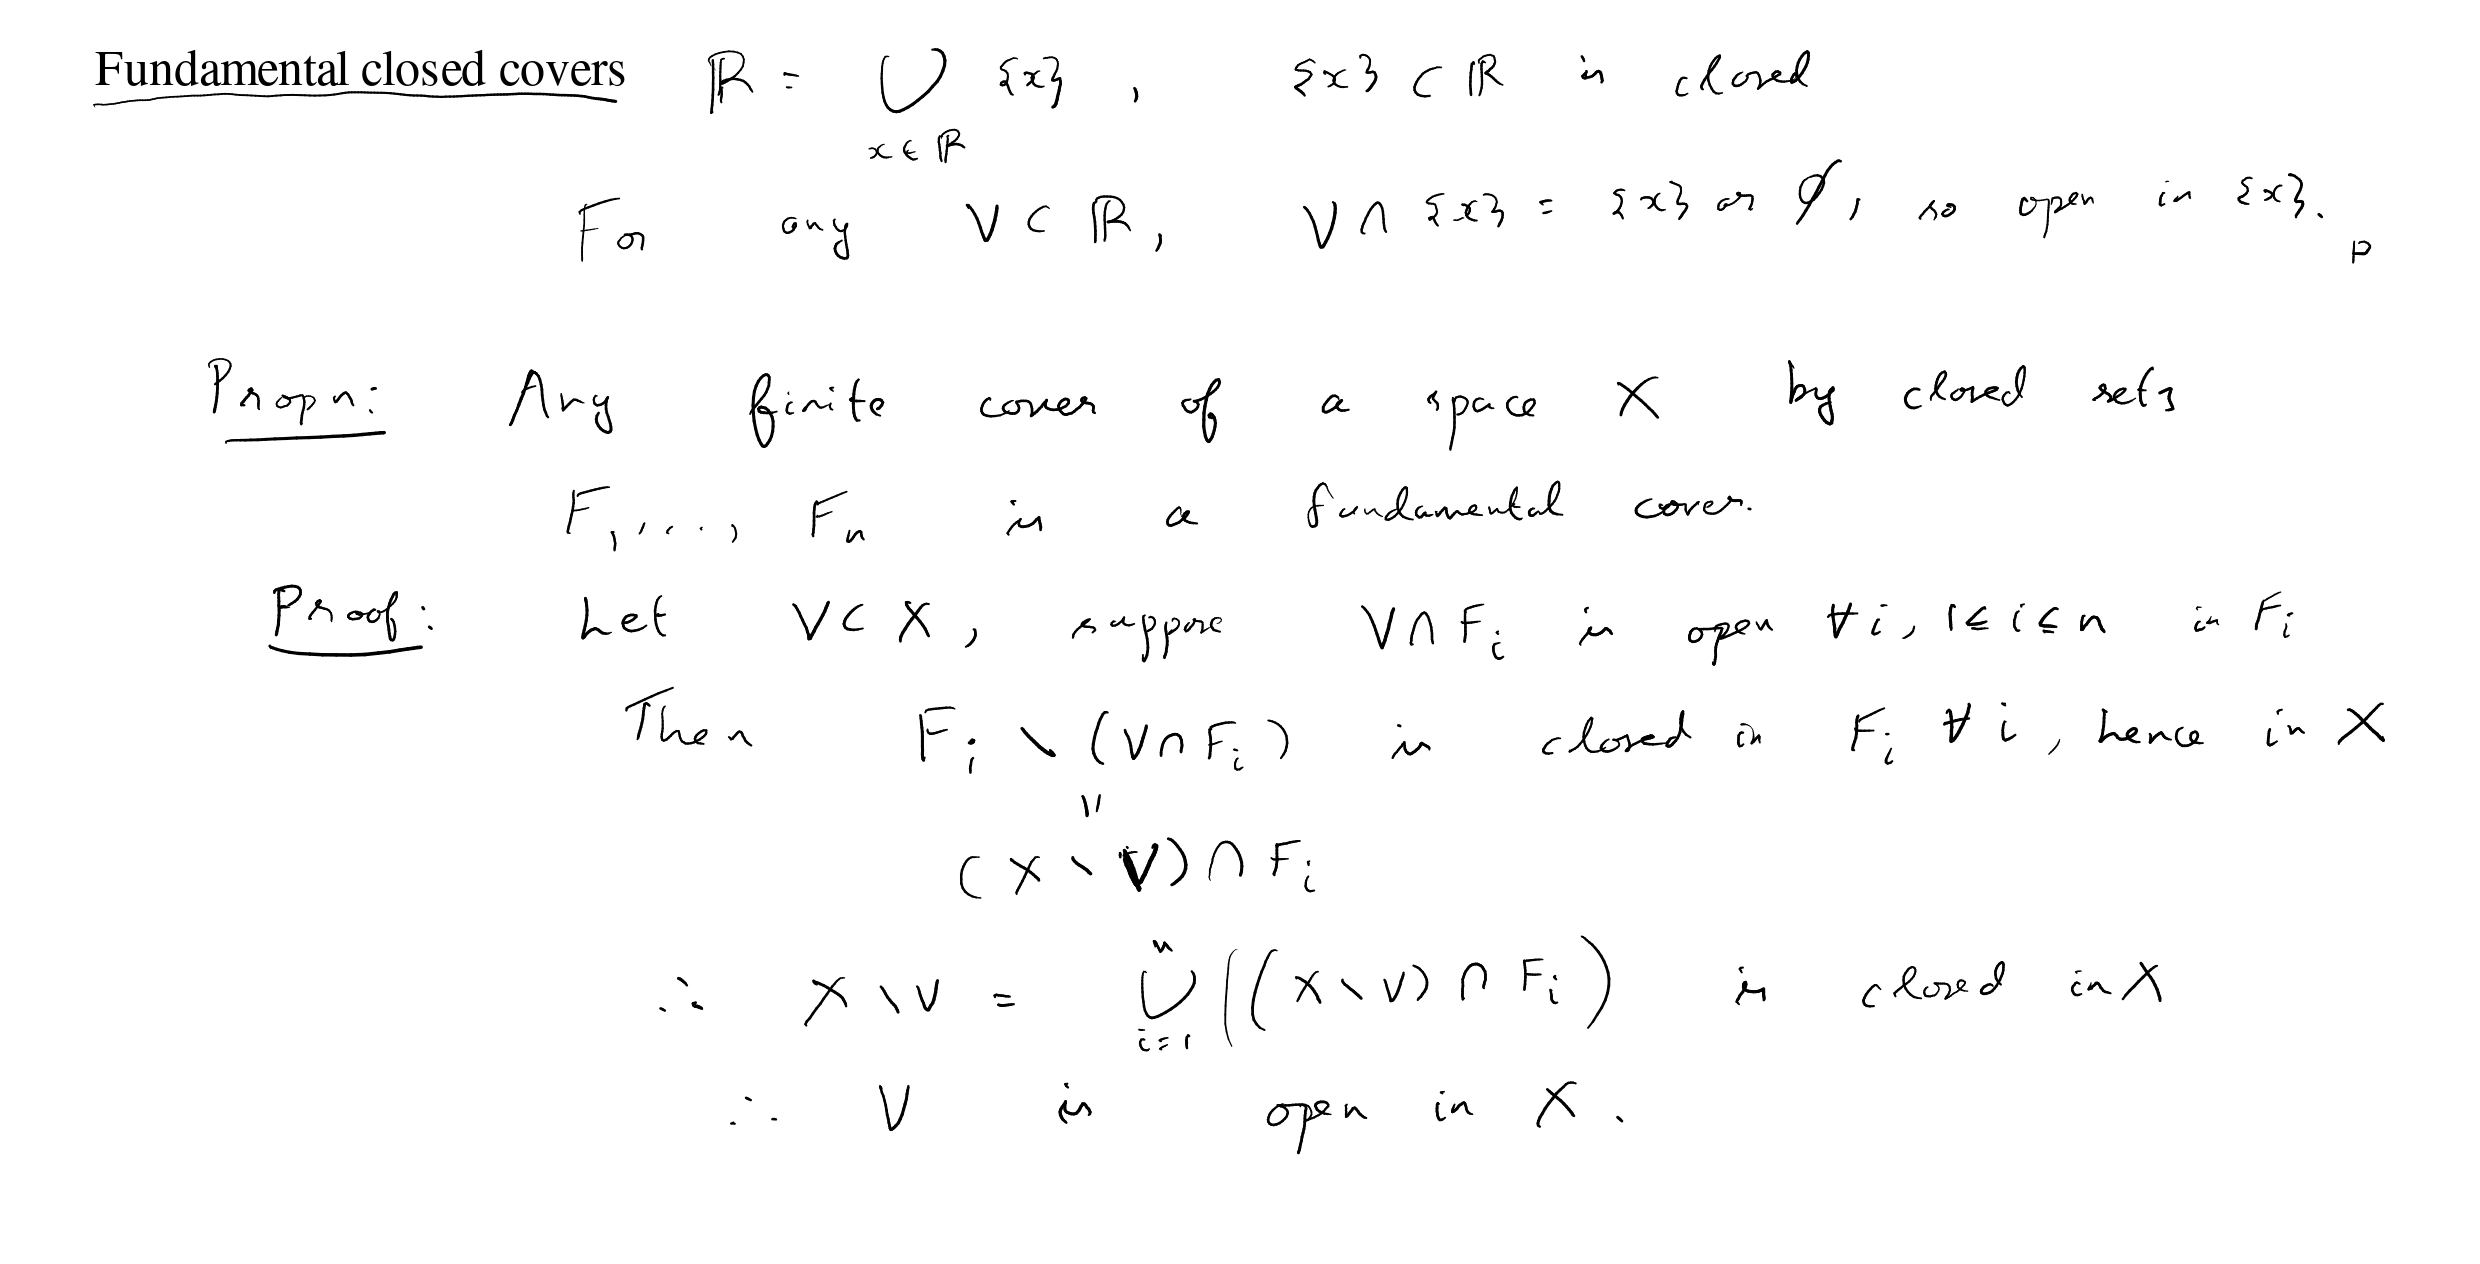 Fundamental closed covers ℝ = ⋃_{x ∈ ℝ} {x}, {x} ⊂ ℝ is closed
For any V ⊂ ℝ, V ∩ {x} = {x} or ∅, so open in {x}.
Propn: Any finite cover of a space X by closed sets
F₁, ..., Fₙ is a fundamental cover.
Proof: Let V ⊂ X, suppose V ∩ Fᵢ is open ∀ i, 1 ≤ i ≤ n in Fᵢ
Then Fᵢ \ (V ∩ Fᵢ) is closed in Fᵢ ∀ i, hence in X
||
(X \ V) ∩ Fᵢ
∴ X \ V = ⋃_{i=1}^{n} ((X \ V) ∩ Fᵢ) is closed in X
∴ V is open in X.